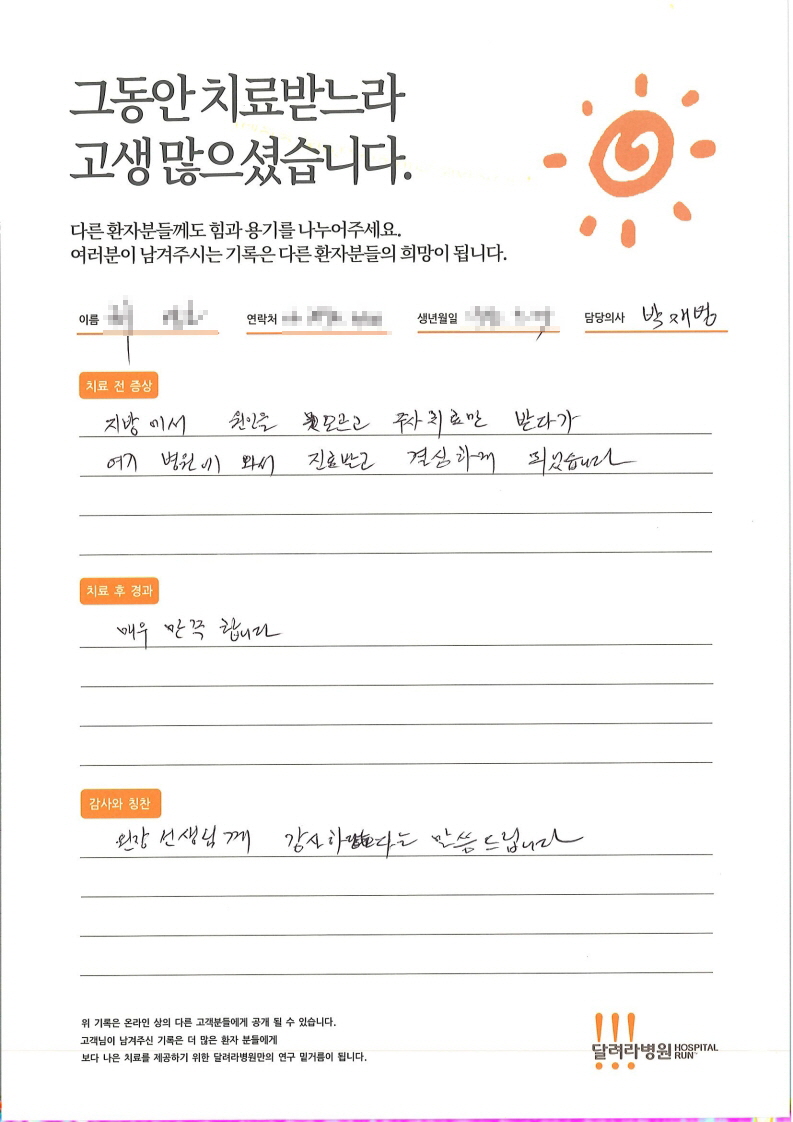 그동안 치료받느라
고생 많으셨습니다.
다른 환자분들께도 힘과 용기를 나누어주세요.
여러분이 남겨주시는 기록은 다른 환자분들의 희망이 됩니다.
이름 연락처 생년월일 담당의사 박재범
치료 전 증상
지방에서 원인을 모르고 주사치료만 받다가
여기 병원에 와서 진료받고 결심하게 되었습니다
치료 후 경과
매우 만족 합니다
감사와 칭찬
원장 선생님께 감사하다는 말씀드립니다
위 기록은 온라인 상의 다른 고객분들에게 공개 될 수 있습니다.
고객님이 남겨주신 기록은 더 많은 환자 분들에게
보다 나은 치료를 제공하기 위한 달려라병원만의 연구 밑거름이 됩니다.
!!!
달려라병원 HOSPITAL RUN